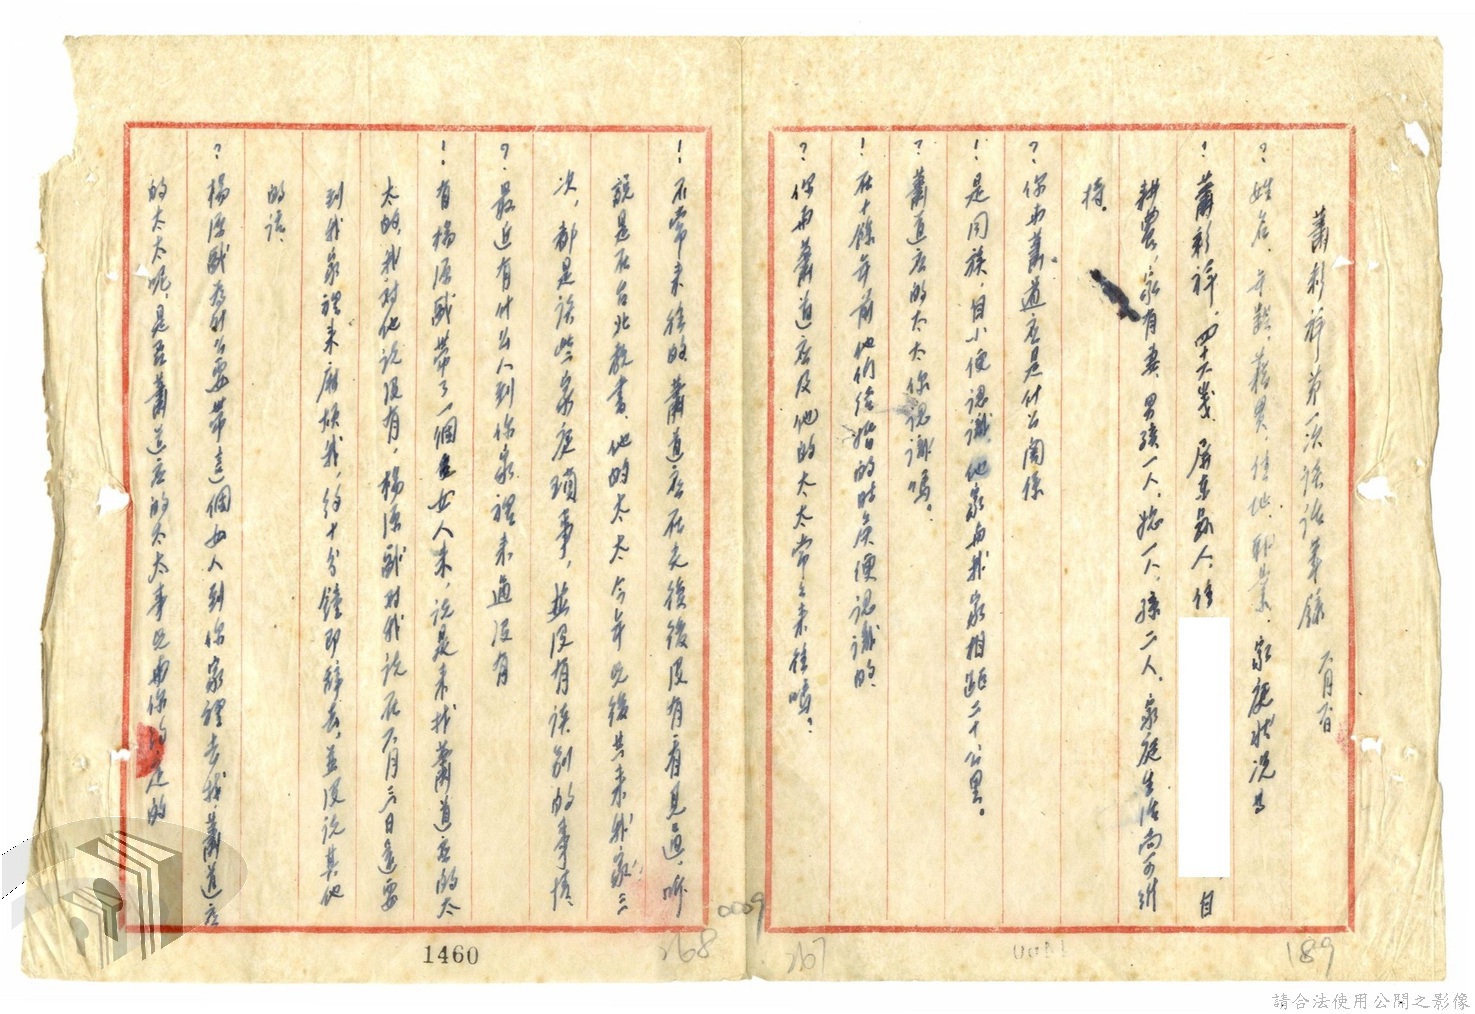 蕭彩祥第一次談話筆錄 六月 日
?姓名、年齡、籍貫、住地、職業、家庭狀況為
!蕭彩祥、四十六歲、屏東縣人、住 自
耕農,家有妻、男孩一人、媳一人、孫二人。家庭生活尚可維
持。
?你與蕭道應是什么關係
!是同族,自小便認識,他家與我家相距二十公里。
?蕭道應的太太你認識嗎。
!在十餘年前他們結婚的時候便認識的、
?你與蕭道應及他的太太常常來往嗎?
!不常來往的、蕭道應在光復後沒有看見過,听
說是在台北教書、他的太太今年先後共來我家三
次,都是談些家庭瑣事,並沒有談別的事情、
?最近有什么人到你家裡來過沒有
!有楊源盛帶了一個女人來,說是來找蕭道應的太
太的,我對他說沒有,楊源盛對我說在六月三日還要
到我家裡來麻煩我,約十分鐘即辭去,並沒說其他
的話、
?楊源盛為什么要帶這個女人到你家裡去找蕭道應
的太太呢,是否蕭道應的太太事先與你約定的
1460
268
0009
267
189
請合法使用公開之影像